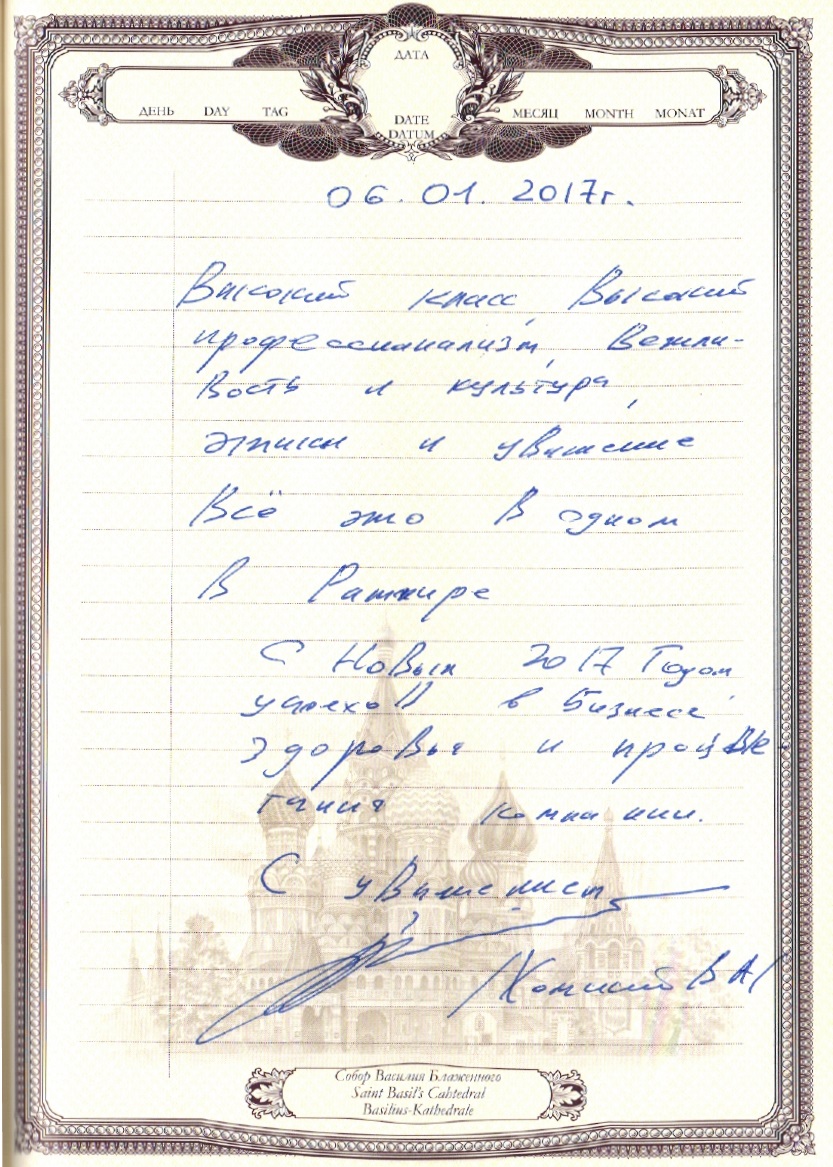 ДАТА
ДЕНЬ DAY TAG
МЕСЯЦ MONTH MONAT
DATE
DATUM
06.01.2017г.
Высокий класс, Высокий
профессионализм, Вежли-
вость и культура,
этики и уважение
Всё это в одном
В Ратмире
С Новым 2017 Годом
успехов в Бизнесе,
Здоровья и процве-
тания компании.
С уважением
В А
Собор Василия Блаженного
Saint Basil's Cahtedral
Basilius-Kathedrale